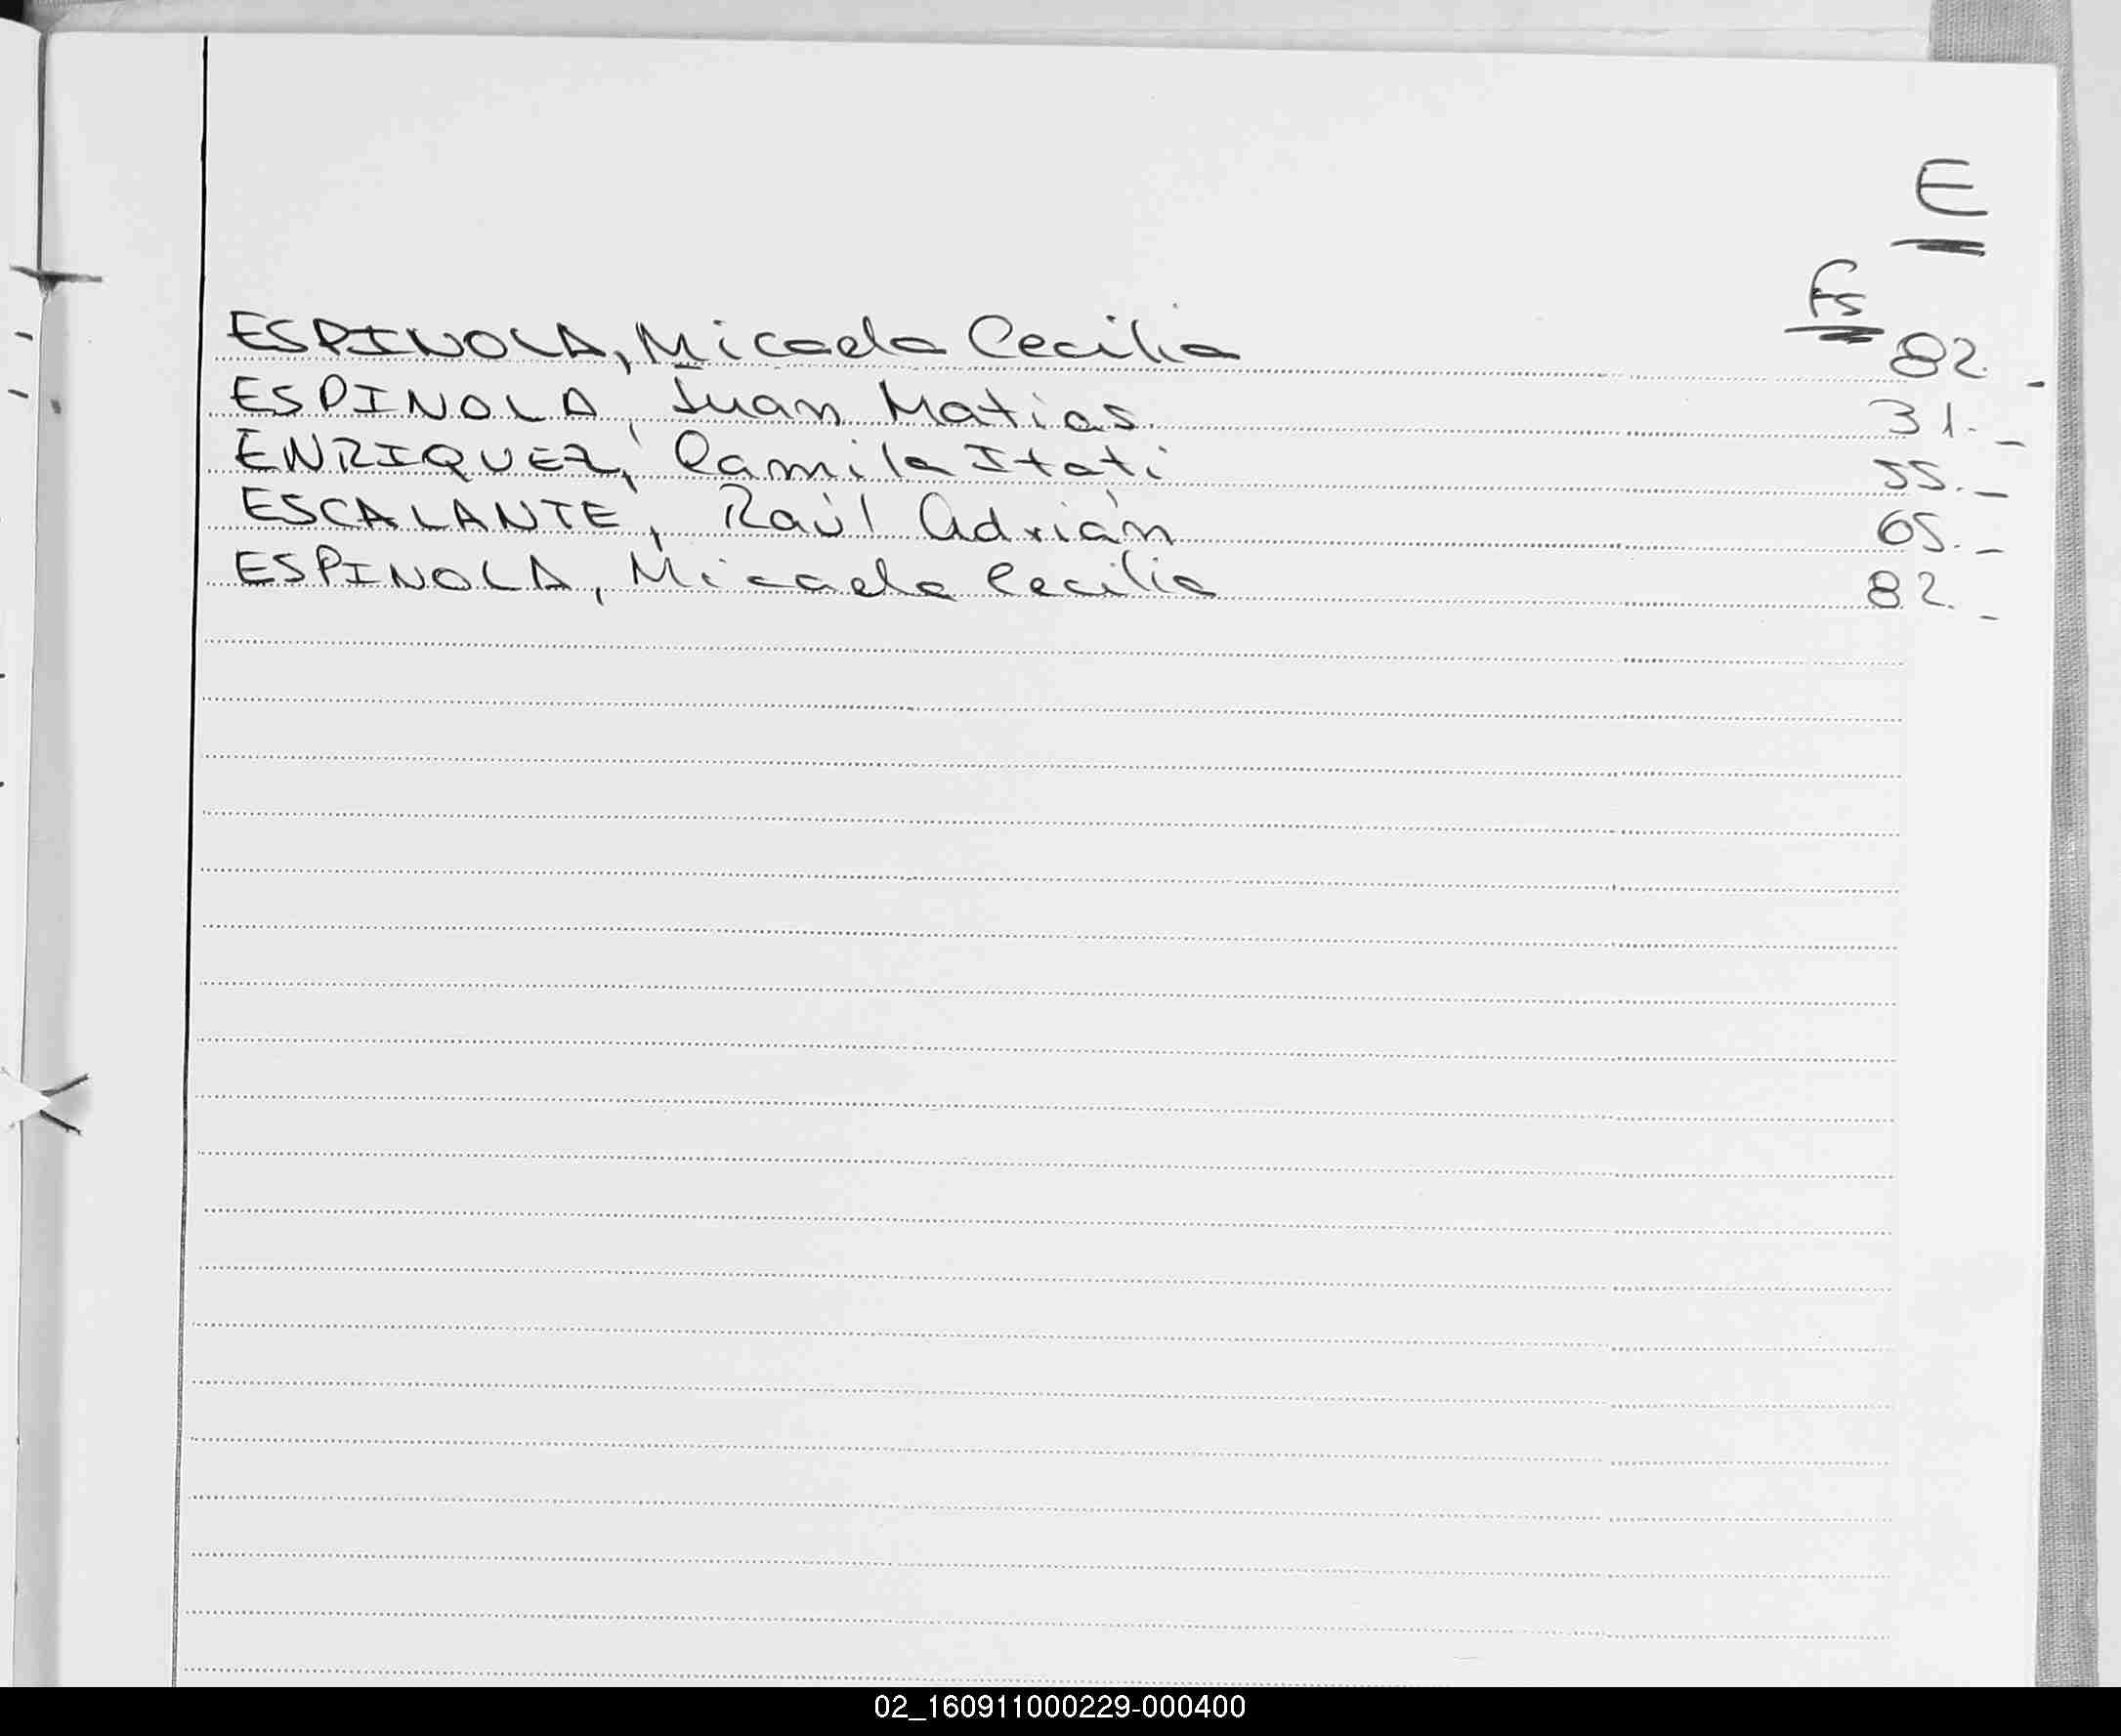 E
Fs
ESPINOLA, Micaela Cecilia 82.-
ESPINOLA, Juan Matias 31.-
ENRIQUEZ, Camila Itati 55.-
ESCALANTE, Raúl Adrián 65.-
ESPINOLA, Micaela Cecilia 82.-
02_160911000229-000400